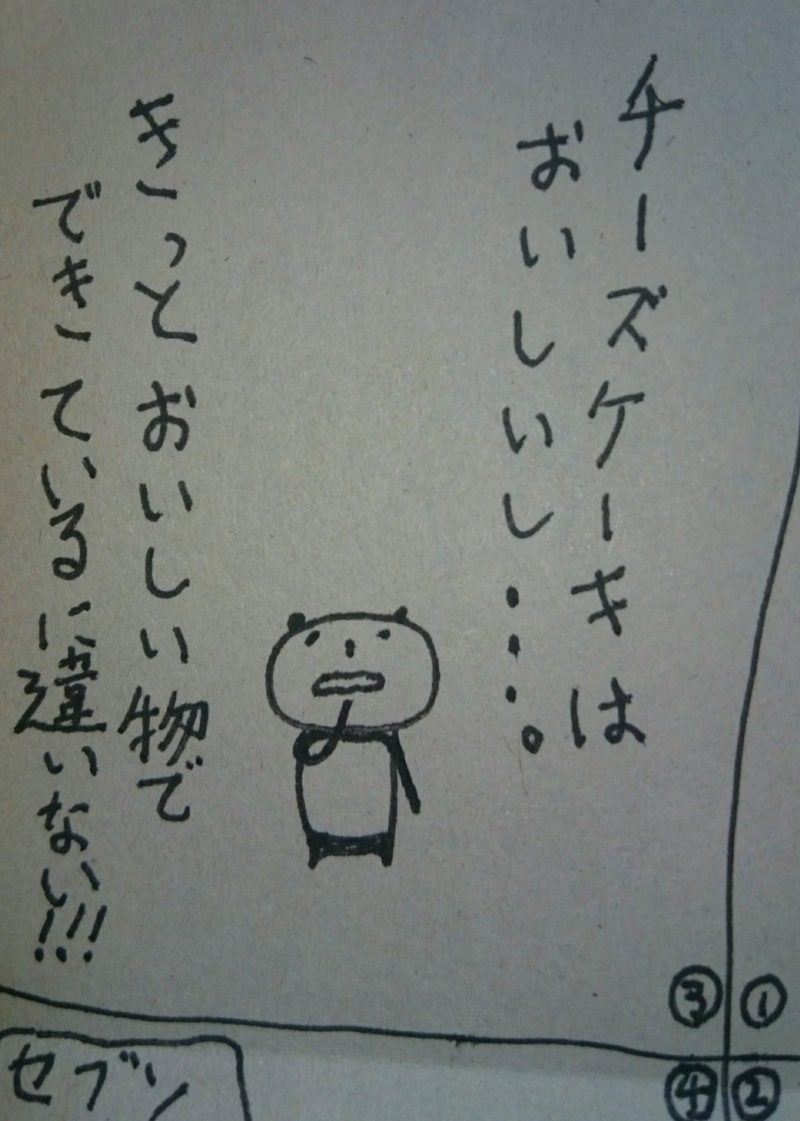 チーズケーキは
おいしいし・・・。
きっとおいしい物で
できているに違いない!!!
③
①
④
②
セブン